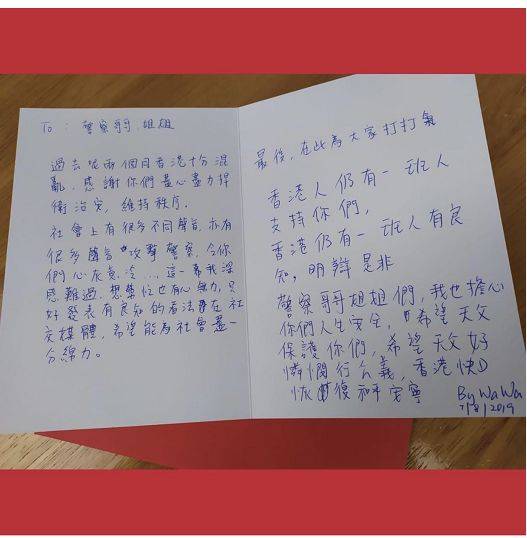 To : 警察哥哥.姐姐
過去呢兩個月香港十分混
亂，感謝你們盡心盡力捍
衛治安，維持秩序。
社會上有很多不同聲音，亦有
很多謠言攻擊警察，令你
們心灰意冷...，這一幕我深
感難過，想幫忙也有心無力，只
好發表有良知的看法在社
交媒體，希望能為社會盡一
分綿力。
最後，在此為大家打打氣
香港人仍有一班人
支持你們，
香港仍有一班人有良
知，明辨是非
警察哥哥姐姐們，我也擔心
你們人生安全，希望天父
保護你們，希望天父好
憐憫行公義，香港快D
恢復和平安寧
By WaWa
7/8/2019